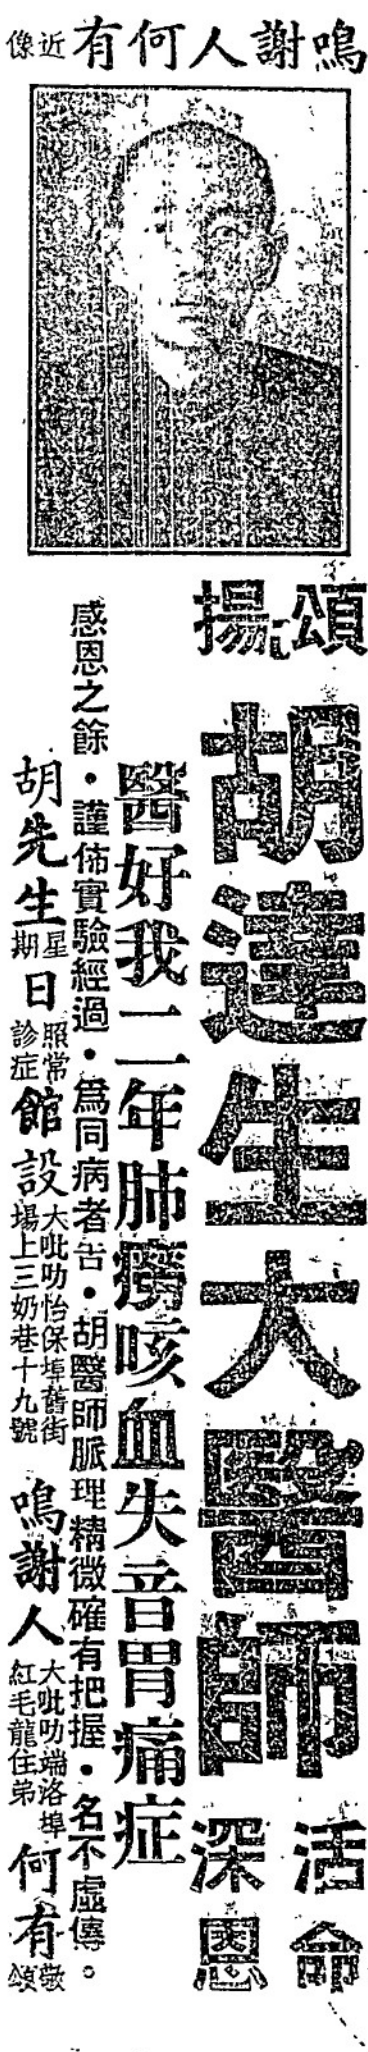 鳴謝人何有近像
頌揚
胡達生大醫師
活命深恩
醫好我二年肺癆咳血失音胃痛症
感恩之餘・謹佈實驗經過・爲同病者告・胡醫師脈理精微確有把握・名不虛傳。
胡先生星期日照常診症館設大吡叻怡保埠舊街場上三奶巷十九號
鳴謝人大吡叻端洛埠紅毛龍住弟何有敬頌